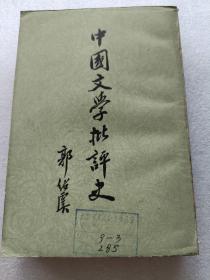 中國文學批評史
郭紹虞
9-3
285